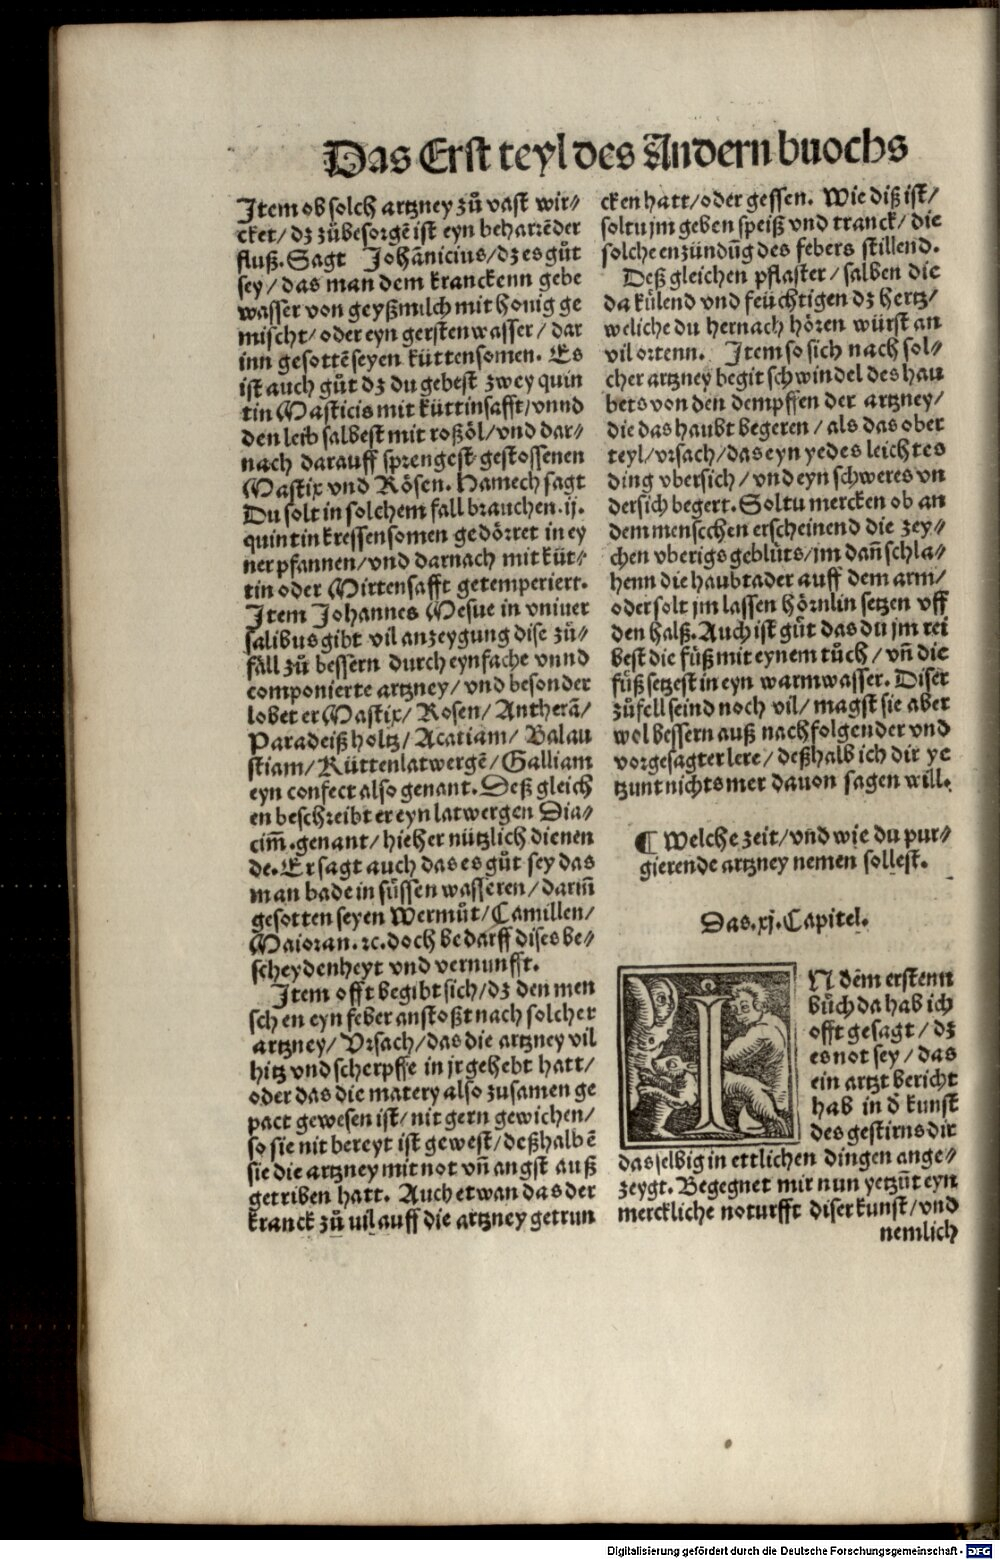 Das Erst teyl des Andern buochs
Item ob solch artzney zů vast wir⸗
cket / dz zůbesorgẽ ist eyn beharrẽder
fluß. Sagt Johãnicius / dz es gůt
sey / das man dem kranckenn gebe
wasser von geyßmilch mit honig ge
mischt / oder eyn gersten wasser / dar
inn gesottẽ seyen küttensomen. Es
ist auch gůt dz du gebest zwey quin
tin Masticis mit küttinsafft / vnnd
den leib salbest mit roßöl / vnd dar⸗
nach darauff sprengest gestossenen
Mastix vnd Rösen. Hamech sagt
Du solt in solchem fall brauchen .ij.
quintin kressensomen gedörret in ey
ner pfannen / vnd darnach mit küt⸗
tin oder Mirtensafft getemperiert.
Item Johannes Mesue in vniuer
salibus gibt vil anzeygung dise zů⸗
fäll zů bessern durch eynfache vnnd
componierte artzney / vnd besonder
lobet er Mastix / Rosen / Antherã /
Paradeiß holtz / Acatiam / Balau
stiam / Küttenlatwergẽ / Galliam
eyn confect also genant. Deß gleich
en beschreibt er eyn latwergen Dia⸗
cim̃. genant / hieher nützlich dienen
de. Er sagt auch das es gůt sey das
man bade in süssen wasseren / darin̄
gesotten seyen Wermůt / Camillen /
Maioran. ⁊c. doch bedarff dises be⸗
scheydenheyt vnd vernunfft.
Item offt begibt sich / dz den men
schen eyn feber anstoßt nach solcher
artzney / Vrsach / das die artzney vil
hitz vnd scherpffe in jr gehebt hatt /
oder das die matery also zusamen ge
pact gewesen ist / nit gern gewichen /
so sie nit bereyt ist gewest / deßhalbẽ
sie die artzney mit not vñ angst auß
getriben hatt. Auch etwan das der
kranck zů uil auff die artzney getrun
cken hatt / oder gessen. Wie diß ist /
soltu jm geben speiß vnd tranck / die
solche enzündũg des febers stillend.
Deß gleichen pflaster / salben die
da külend vnd feüchtigen dz hertz /
weliche du hernach hören würst an
vil ortenn. Item so sich nach sol⸗
cher artzney begit schwindel des hau
bets von den dempffen der artzney /
die das haubt begeren / als das ober
teyl / vrsach / das eyn yedes leichtes
ding vbersich / vnd eyn schweres vn
dersich begert. Soltu mercken ob an
dem menscchen erscheinend die zey⸗
chen vberigs geblüts / jm dañ schla⸗
henn die haubtader auff dem arm /
oder solt jm lassen hörnlin setzen vff
den halß. Auch ist gůt das du jm rei
best die füß mit eynem tůch / vñ die
füß setzest in eyn warm wasser. Diser
zůfell seind noch vil / magst sie aber
wol bessern auß nachfolgender vnd
vorgesagter lere / deßhalb ich dir ye
tzunt nichts mer dauon sagen will.
¶ Welche zeit / vnd wie du pur⸗
gierende artzney nemen sollest.
Das .xj. Capitel.
IN dẽm erstenn
bůch da hab ich
offt gesagt / dz
es not sey / das
ein artzt bericht
hab in d̃ kunst
des gestirns dir
dasselbig in ettlichen dingen ange⸗
zeygt. Begegnet mir nun yetzũt eyn
merckliche noturfft diser kunst / vnd
nemlich
Digitalisierung gefördert durch die Deutsche Forschungsgemeinschaft - DFG